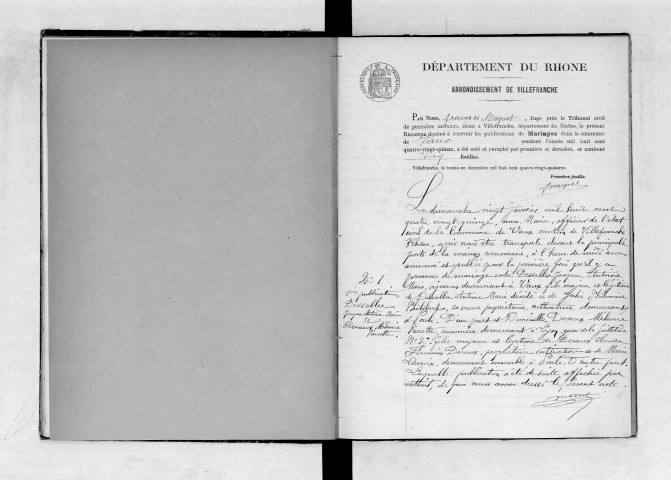 DÉPARTEMENT DU RHONE
ARRONDISSEMENT DE VILLEFRANCHE
PAR NOUS, François, Juge près le Tribunal civil
de première instance, séant à Villefranche, département du Rhône, le présent
REGISTRE destiné à recevoir les publications de Mariages dans la commune
de Vaux pendant l'année mil huit cent
quatre-vingt-quinze, a été coté et paraphé par première et dernière, et contient
feuilles.
Villefranche, le trente-un décembre mil huit cent quatre-vingt-quatorze.
Première feuille.
Le dimanche vingt janvier mil huit cent
quatre vingt quinze, nous, Maire, officier de l'état
civil de la Commune de Vaux canton de Villefranche
Rhône, après nous être transporté devant la principale
porte de la maison commune, à l'heure de midi avons
annoncé et publié pour la première fois qu'il y a
promesse de mariage entre Jacques Antoine
Marie, vigneron demeurant à Vaux fils majeur et légitime
de Antoine Marie décédé et de Philomène
sa veuve propriétaire, cultivatrice demeurant
d'une part et Demoiselle Devaux Mélanie
Pierrette demeurant à Lyon, quai de la
N° 27 fille majeure et légitime de Devaux Claude
Devaux, propriétaire cultivateur et de Marie
demeurant ensemble à d'autre part.
Laquelle publication a été de suite affichée par
extrait, de quoi nous avons dressé le présent acte.
N° 1
1re publication
Jacques Antoine Marie
et
Devaux Mélanie
Pierrette